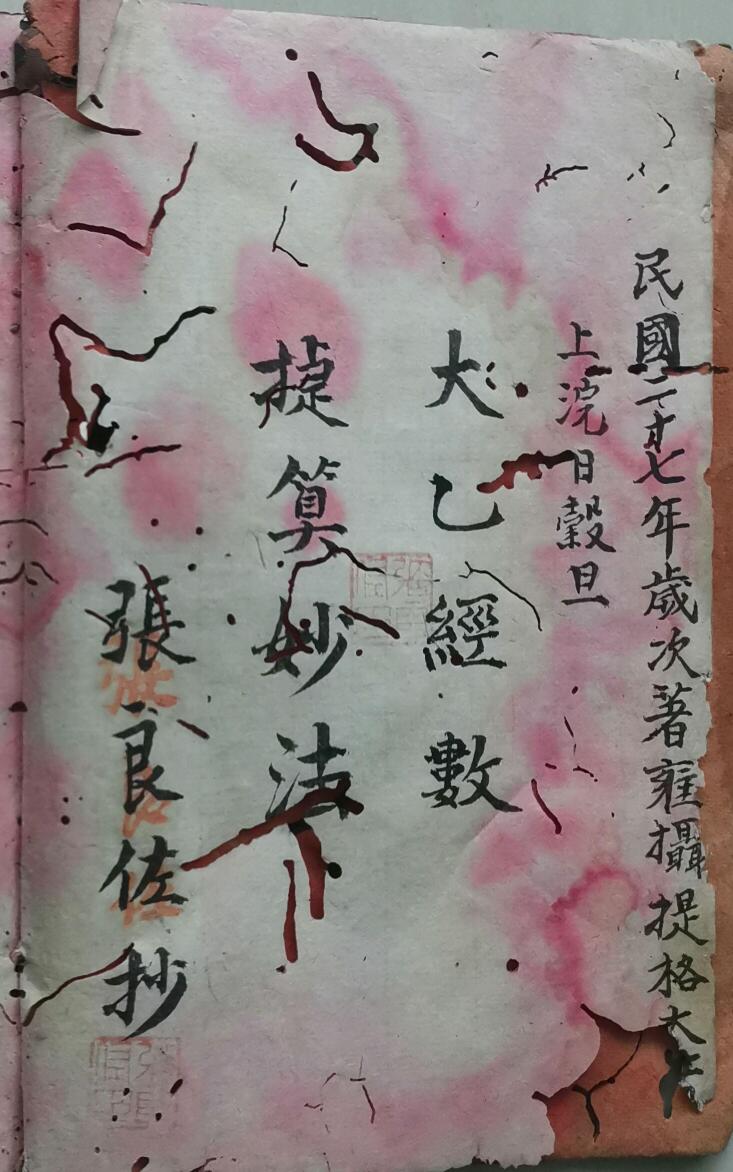 民國二十七年歲次著雍攝提格大
上浣日穀旦
大乙經數
捷算妙法
張良佐抄